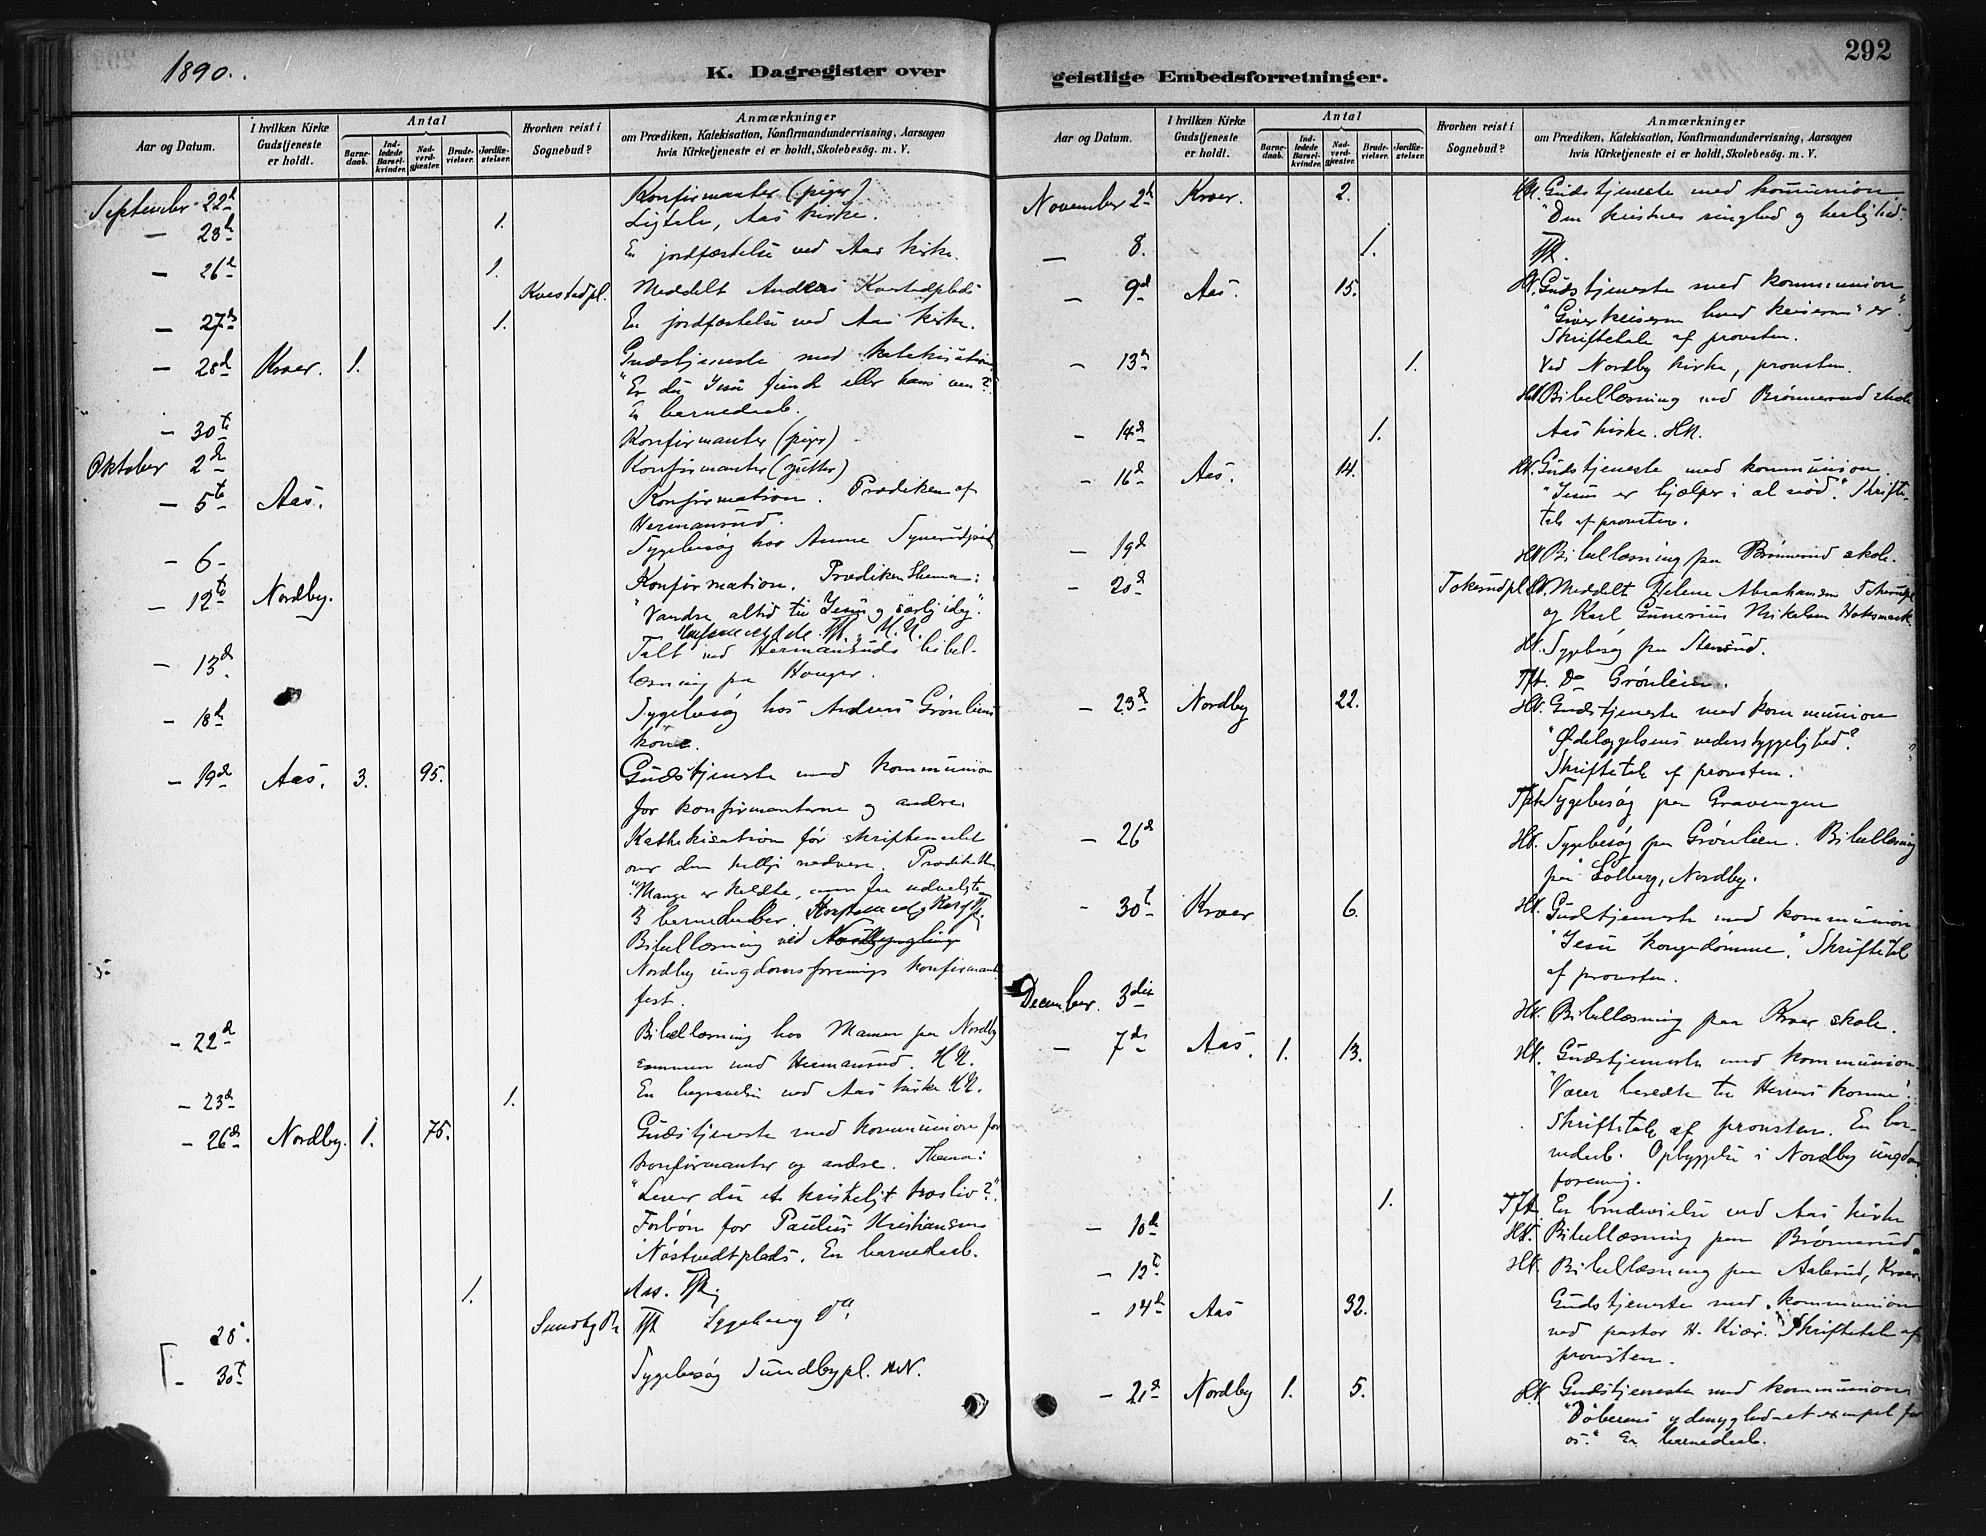 1890.
K. Dagregister over
Aar og Datum.
I hvilken Kirke Gudstjeneste er holdt.
Antal
Barnedaab.
Indledede Barselkvinder.
Nadverdgjæster.
Brudevielser.
Jordfæstelser.
Hvorhen reist i Sognebud?
Anmærkninger
om Prædiken, Katekisation, Konfirmandundervisning, Aarsagen
hvis Kirketjeneste ei er holdt, Skolebesøg. m. V.
September 22d Konfirmanter (piger)
- 23d 1. Ligtale, Aas kirke.
- 26d 1. En jordfæstelse ved Aas kirke.
Kvestadpl. Meddelt Andreas Kvestadplads
- 27d 1. En jordfæstelse ved Aas kirke.
- 28d Kroer. 1. Gudstjeneste med katekisation
"Er du Jesu fiende eller hans ven?"
En barnedaab.
- 30te Konfirmanter (piger)
Oktober 2den Konfirmanter (gutter)
- 5te Aas. Konfirmation. Prædiken af
Hermansrud.
- 6- Sygebesøg hos Anne
- 12te Nordby. Konfirmation. Prædiken Thema:
"Vandre altid til Jesu
- 13d Talt ved Hermansruds bibel-
læsning paa Hauger.
- 18d Sygebesøg hos Andreas Grønliens
kone.
- 19de Aas. 3. 95. Gudstjeneste med kommunion
for konfirmanterne og andre.
Kathekisation før skriftemaalet
over den hellige nadvere.
"Mange er kaldte, men faa udvalgte"
3 barnedaaber.
Bibellæsning ved
Nordby ungdomsforenings konfirmant
fest.
- 22d Bibellæsning hos Mamen paa Nordby
sammen med Hermansrud. HN.
- 23d 1. En begravelse ved Aas kirke HN.
- 26de Nordby. 1. 75. Gudstjeneste med kommunion for
konfirmanter og andre. Thema:
"Lever du et kristeligt trosliv?"
Forbøn for Paulus Kristiansen
Nøstvedtplads. En barnedaab.
1. Aas. Tft.
28. Sundby Pl. Tft Sygebesøg
- 30te Sygebesøg Sundbypl. HN.
292
geistlige Embedsforretninger.
Aar og Datum.
I hvilken Kirke Gudstjeneste er holdt.
Antal
Barnedaab.
Indledede Barselkvinder.
Nadverdgjæster.
Brudevielser.
Jordfæstelser.
Hvorhen reist i Sognebud?
Anmærkninger
om Prædiken, Katekisation, Konfirmandundervisning, Aarsagen
hvis Kirketjeneste ei er holdt, Skolebesøg. m. V.
November 2d Kroer. 2. HN. Gudstjeneste med kommunion
"Den kristnes ringhed og herlighed".
- 8. 1. Tft.
- 9d Aas. 15. HN. Gudstjeneste med kommunion
"Giver keiseren hvad keiserens er".
Skriftetale af provsten.
- 13d 1. Ved Nordby kirke, provsten.
HN Bibellæsning ved Brønnerud skole
- 14d 1. Aas kirke. HN.
- 16d Aas. 14. HN. Gudstjeneste med kommunion.
"Jesus er hjælper i al nød." Skrifte-
tale af provsten.
- 19d HN Bibellæsning paa Brønnerud skole.
- 20d Tokerudpl HN. Meddelt Helene Abrahamsen Tokerudpl
og Karl Gunerius Nikolsen
HN. Sygebesøg paa Stensrud.
Tft. Do Grønlien.
- 23d Nordby 22. HN. Gudstjeneste med kommunion
"Ødelæggelsens vederstyggelighed".
Skriftetale af provsten.
Tft Sygebesøg paa Gravengen
- 26d HN. Sygebesøg paa Grønlien. Bibellæsning
paa Solberg, Nordby.
- 30te Kroer 6. HN. Gudstjeneste med kommunion
"Jesu kongedømme." Skriftetale
af provsten.
December. 3die HN. Bibellæsning paa Kroer skole.
- 7de Aas. 1. 13. HN. Gudstjeneste med kommunion.
"Værer beredte til Herrens komme".
Skriftetale af provsten. En bar-
nedaab. Opbyggelse i Nordby ungdoms
forening.
1. Tft. En brudevielse ved Aas kirke
- 10d HN. Bibellæsning paa Brønnerud.
- 12te HN. Bibellæsning paa Aalerud, Kroer.
- 14d Aas 32. Gudstjeneste med kommunion
ved pastor H. Kiær. Skriftetale af
provsten.
- 21d Nordby 1. 5. HN. Gudstjeneste med kommunion
"Døberens ydmyghed et exempel for
os." En barnedaab.